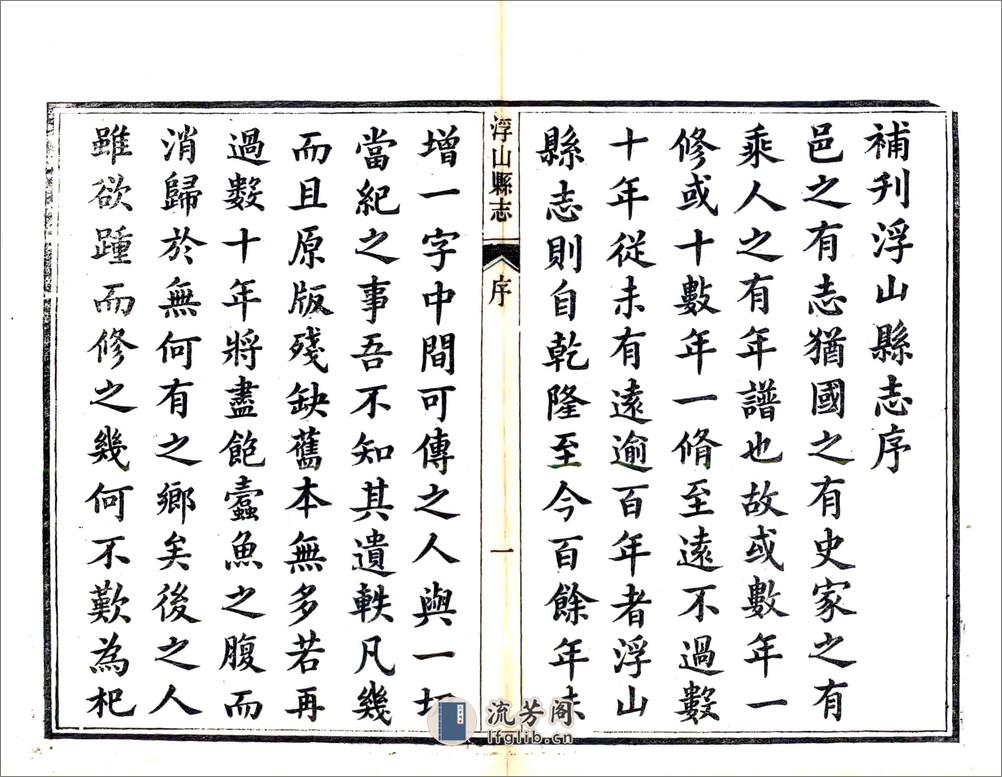 補刋浮山縣志序
邑之有志猶國之有史家之有
乘人之有年譜也故或數年一
修或十數年一脩至遠不過數
十年從未有遠逾百年者浮山
縣志則自乾隆至今百餘年未
浮山縣志
序
一
增一字中間可傳之人與一切
當紀之事吾不知其遺軼凡幾
而且原版殘缺舊本無多若再
過數十年將盡飽蠹魚之腹而
消歸於無何有之鄉矣後之人
雖欲踵而修之幾何不歎為杞
流芳阁
lfglib.cn